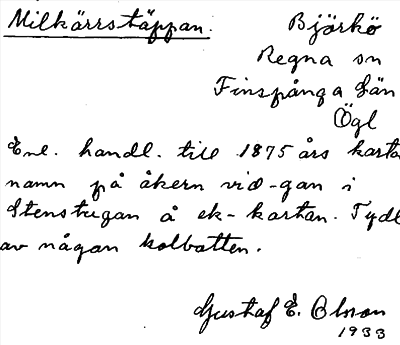 Milkärrstäppan.
Björkö
Regna sn
Finspånga län
Ögl
Enl. handl. till 1875 års karta
namn på åkern vid -gan i
Stenstugan å ek-kartan. Tydl
av någon kolbotten.
Gustaf E. Olsson
1933